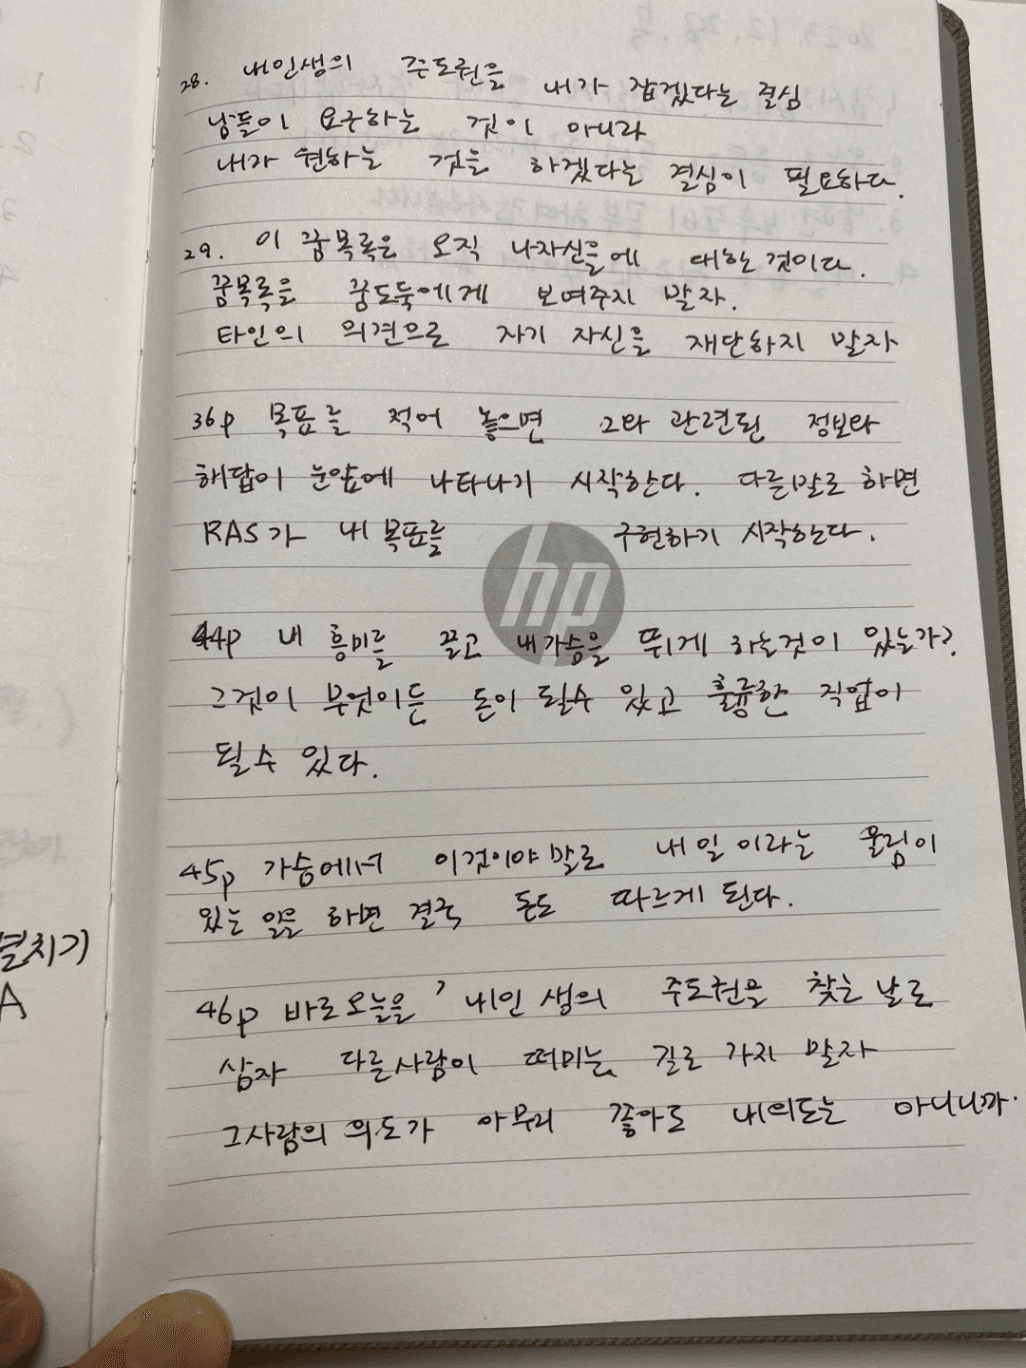 28. 내인생의 주도권을 내가 잡겠다는 결심
남들이 요구하는 것이 아니라
내가 원하는 것을 하겠다는 결심이 필요하다.
29. 이 꿈목록은 오직 나자신들에 대한 것이다.
꿈목록을 꿈도둑에게 보여주지 말자.
타인의 의견으로 자기 자신을 재단하지 말자
36p 목표를 적어 놓으면 그와 관련된 정보와
해답이 눈앞에 나타나기 시작한다. 다른말로 하면
RAS가 내 목표를 구현하기 시작한다.
hp
44p 내 흥미를 끌고 내가슴을 뛰게 하는것이 있는가?
그것이 무엇이든 돈이 될수 있고 훌륭한 직업이
될수 있다.
45p 가슴에서 이것이야말로 내일이라는 울림이
있는 일을 하면 결국 돈도 따르게 된다.
46p 바로오늘을 ' 내인생의 주도권을 찾는 날로
삼자 다른사람이 떠미는 길로 가지 말자
그사람의 의도가 아무리 좋아도 내의도는 아니니까.
펼치기
A